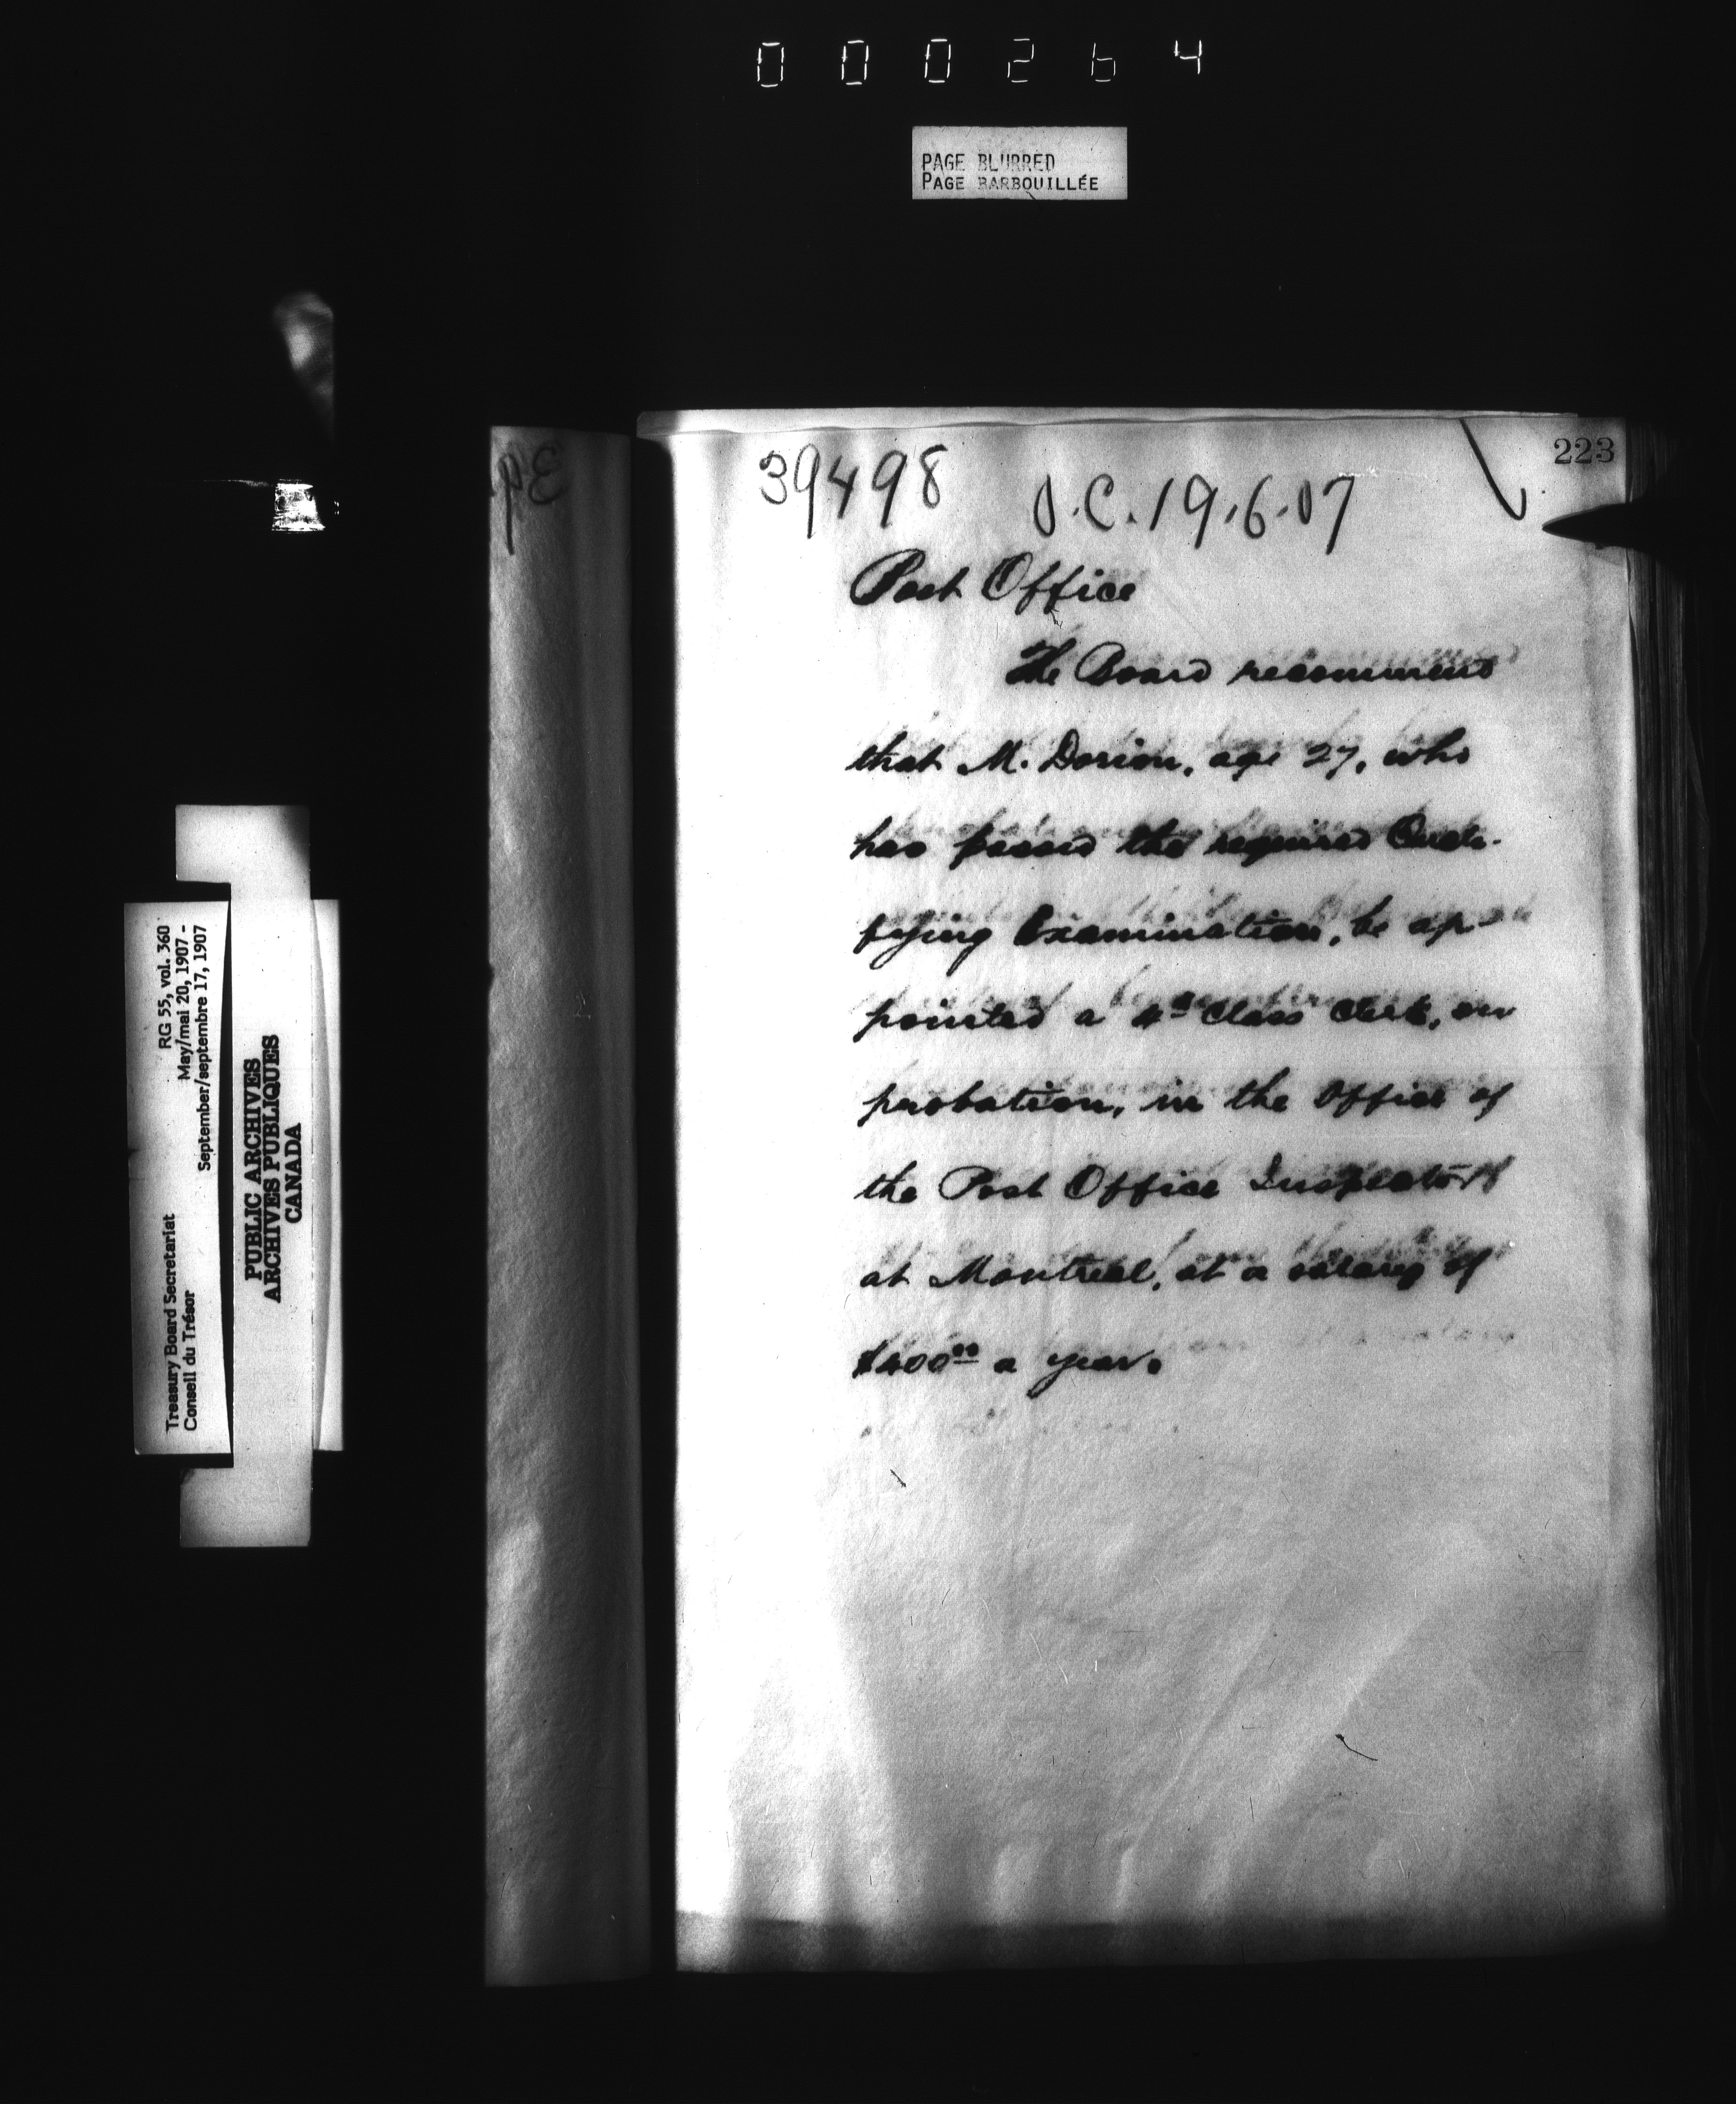 000264
PAGE BLURRED
PAGE BARBOUILLÉE
223
39498 O.C. 19.6.07
Post Office
The Board recommend
that M. Dorion, age 27, who
has passed the required Quali-
fying Examination, be ap-
pointed a 4th Class Clerk, on
probation, in the Office of
the Post Office Inspector
at Montreal, at a salary of
$400.00 a year.
RG 55, vol. 360
May/mai 20, 1907 -
September/septembre 17, 1907
Treasury Board Secretariat
Conseil du Trésor
PUBLIC ARCHIVES
ARCHIVES PUBLIQUES
CANADA